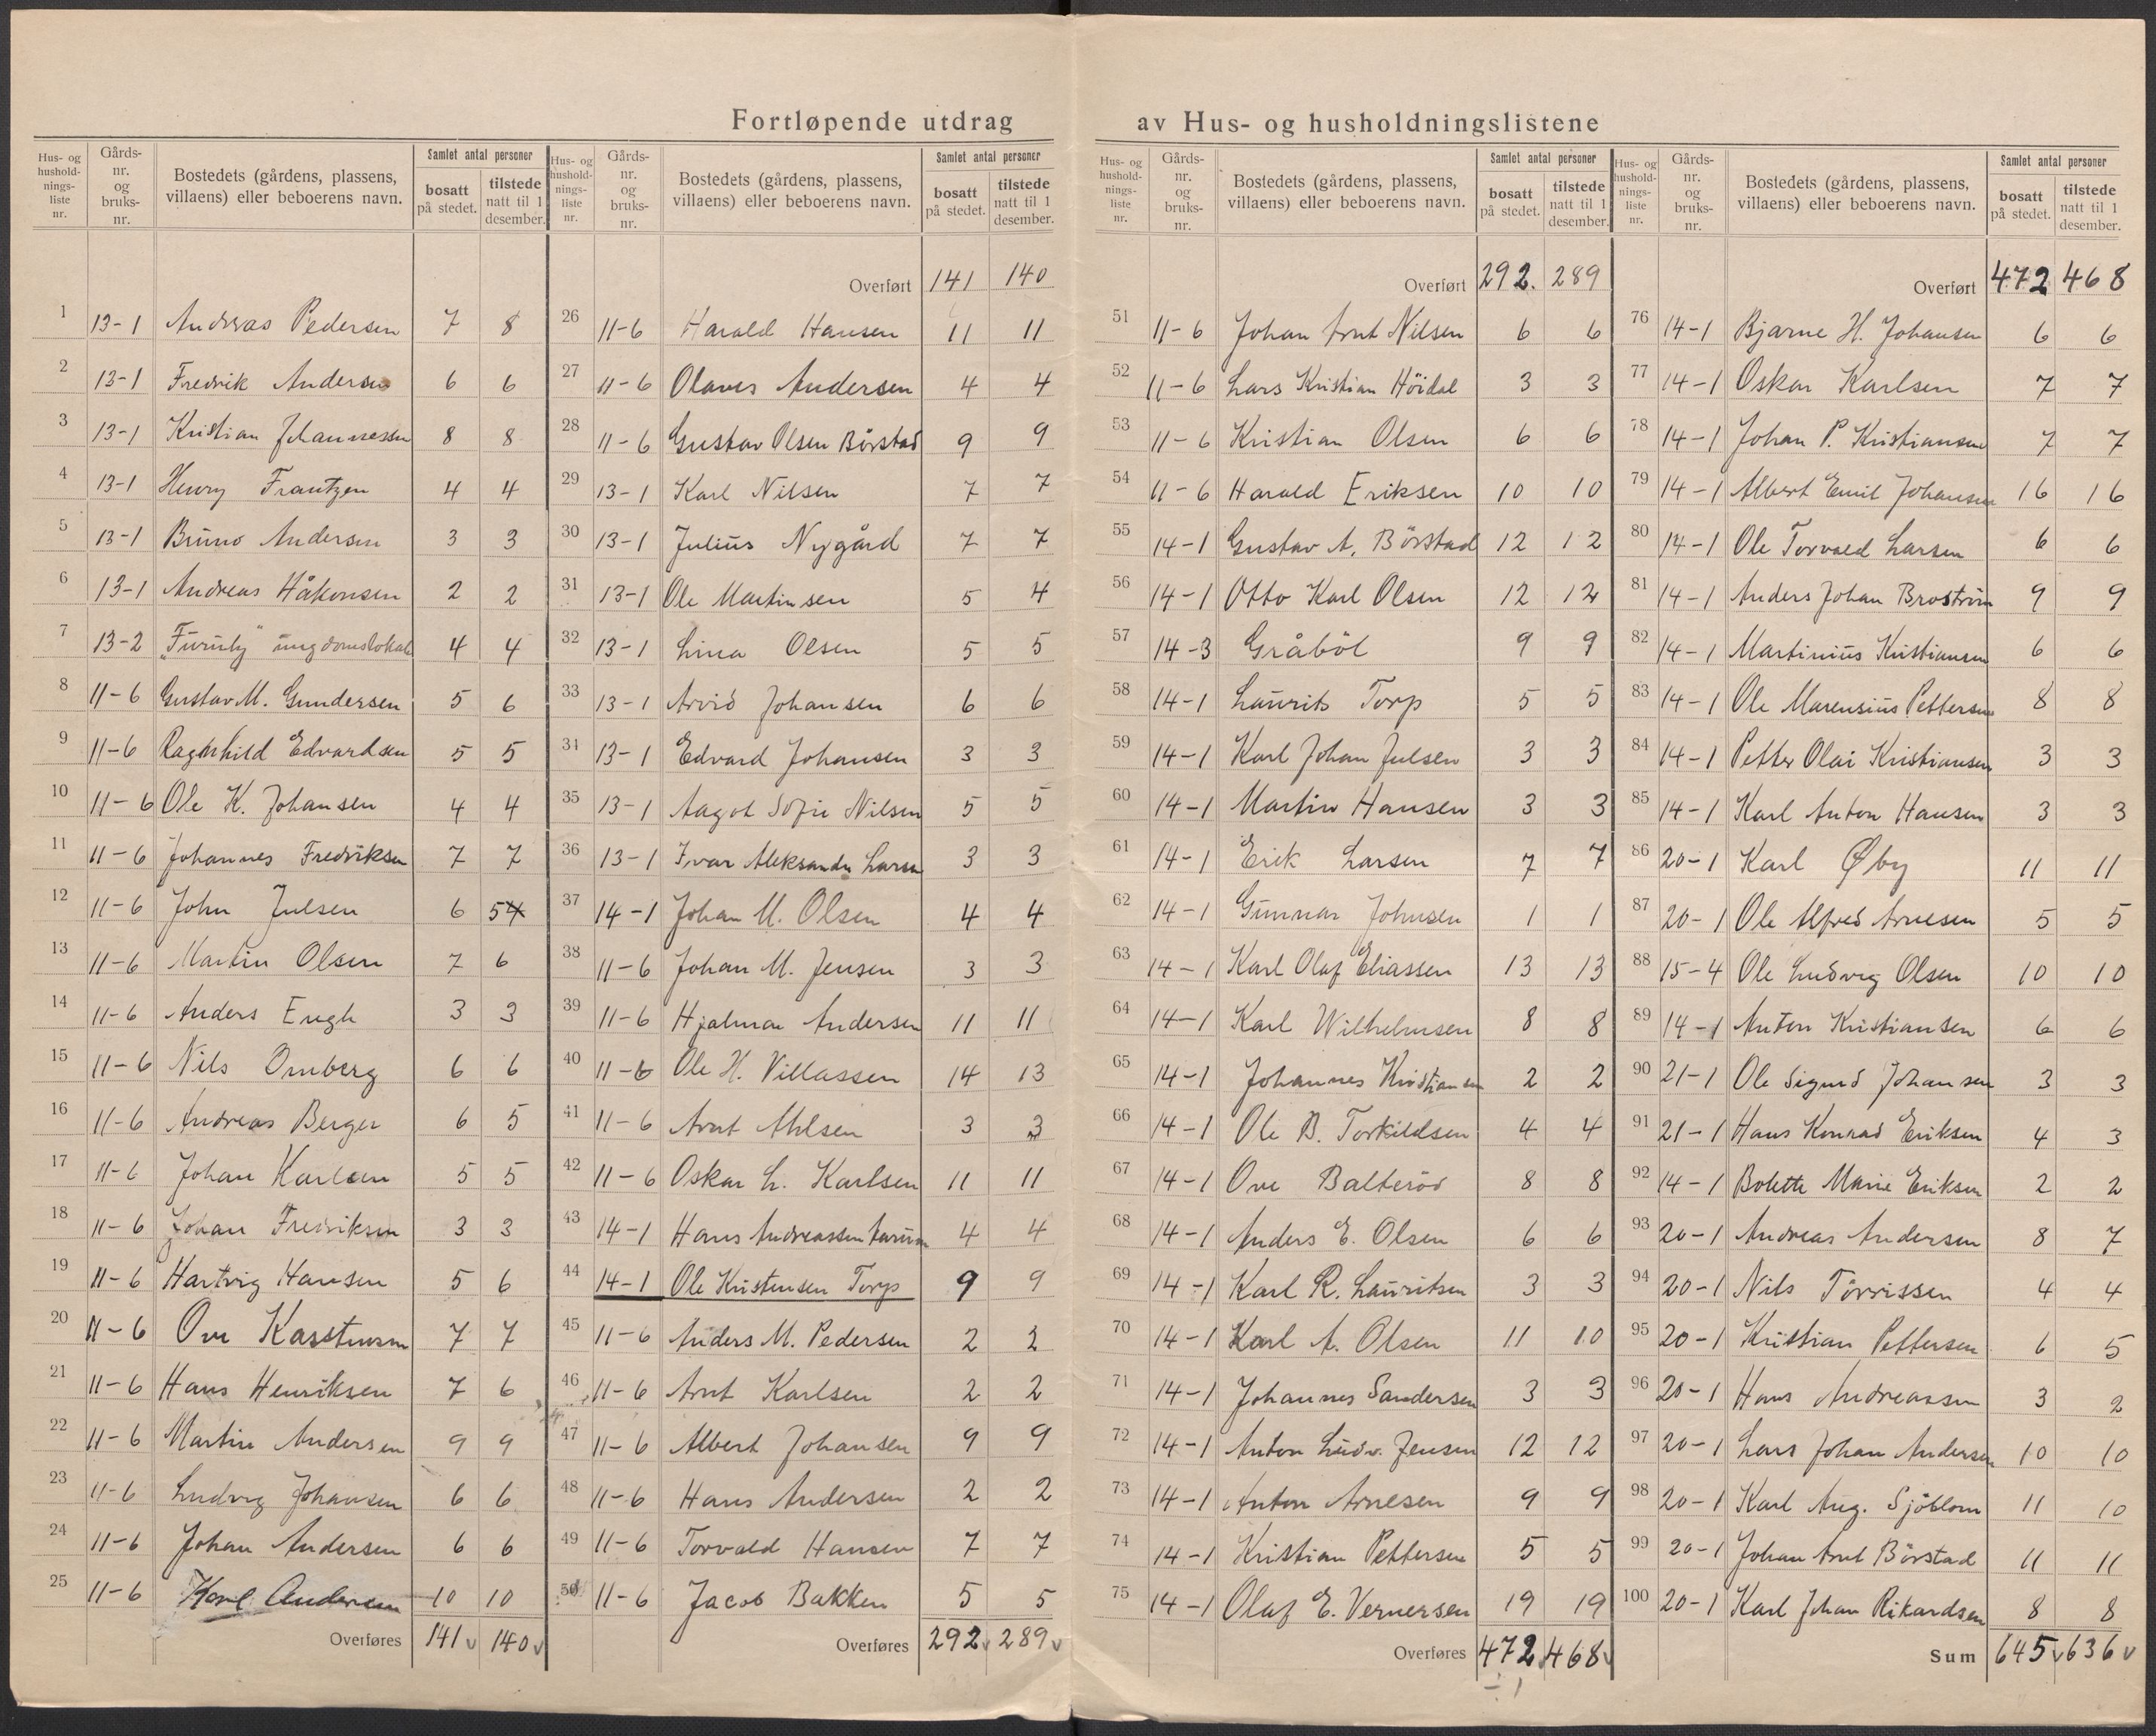 Fortløpende utdrag av Hus- og husholdningslistene
Hus- og hushold-nings-liste nr. Gårds-nr. og bruks-nr. Bostedets (gårdens, plassens, villaens) eller beboerens navn. Samlet antal personer bosatt på stedet. tilstede natt til 1 desember.
1 13-1 Andreas Pedersen 7 8
2 13-1 Fredrik Andersen 6 6
3 13-1 Kristian Johannessen 8 8
4 13-1 Henry Frantzen 4 4
5 13-1 Bruno Andersen 3 3
6 13-1 Andreas Håkonsen 2 2
7 13-2 "Furuly" ungdomslokale 4 4
8 11-6 Gustav M. Gundersen 5 6
9 11-6 Ragnhild Edvardsen 5 5
10 11-6 Ole K. Johansen 4 4
11 11-6 Johannes Fredriksen 7 7
12 11-6 John Julsen 6 5 4
13 11-6 Martin Olsen 7 6
14 11-6 Anders Engh 3 3
15 11-6 Nils Omberg 6 6
16 11-6 Andreas Berger 6 5
17 11-6 Johan Karlsen 5 5
18 11-6 Johan Fredriksen 3 3
19 11-6 Hartvig Hansen 5 6
20 11-6 Ove 7 7
21 11-6 Hans Henriksen 7 6
22 11-6 Martin Andersen 9 9
23 11-6 Ludvig Johansen 6 6
24 11-6 Johan Andersen 6 6
25 11-6 Karl Andersen 10 10
Overføres 141 140
Hus- og hushold-nings-liste nr. Gårds-nr. og bruks-nr. Bostedets (gårdens, plassens, villaens) eller beboerens navn. Samlet antal personer bosatt på stedet. tilstede natt til 1 desember.
Overført 141 140
26 11-6 Harald Hansen 11 11
27 11-6 Olaves Andersen 4 4
28 11-6 Gustav Olsen Børstad 9 9
29 13-1 Karl Nilsen 7 7
30 13-1 Julius Nygård 7 7
31 13-1 Ole Martinsen 5 4
32 13-1 Lina Olsen 5 5
33 13-1 Arvid Johansen 6 6
34 13-1 Edvard Johansen 3 3
35 13-1 Aagot Sofie Nilsen 5 5
36 13-1 Ivar Aleksander Larsen 3 3
37 14-1 Johan M. Olsen 4 4
38 11-6 Johan M. Jensen 3 3
39 11-6 Hjalmar Andersen 11 11
40 11-6 Ole H. Villassen 14 13
41 11-6 Arnt Ahlsen 3 3
42 11-6 Oskar L. Karlsen 11 11
43 14-1 Hans Andreassen 4 4
44 14-1 Ole Kristensen Torp 9 9
45 11-6 Anders M. Pedersen 2 2
46 11-6 Arnt Karlsen 2 2
47 11-6 Albert Johansen 9 9
48 11-6 Hans Andersen 2 2
49 11-6 Torvald Hansen 7 7
50 11-6 Jacob Bakken 5 5
Overføres 292 289
Hus- og hushold-nings-liste nr. Gårds-nr. og bruks-nr. Bostedets (gårdens, plassens, villaens) eller beboerens navn. Samlet antal personer bosatt på stedet. tilstede natt til 1 desember.
Overført 292. 289
51 11-6 Johan Arnt Nilsen 6 6
52 11-6 Lars Kristian Höidal 3 3
53 11-6 Kristian Olsen 6 6
54 11-6 Harald Eriksen 10 10
55 14-1 Gustav A. Börstad 12 12
56 14-1 Otto Karl Olsen 12 12
57 14-3 Gråböl 9 9
58 14-1 Laurits Torp 5 5
59 14-1 Karl Johan Julsen 3 3
60 14-1 Martin Hansen 3 3
61 14-1 Erik Larsen 7 7
62 14-1 Gunnar Johnsen 1 1
63 14-1 Karl Olaf Eliassen 13 13
64 14-1 Karl Wilhelmsen 8 8
65 14-1 Johannes Kristiansen 2 2
66 14-1 Ole B. Torkildsen 4 4
67 14-1 Ove Balteröd 8 8
68 14-1 Anders E. Olsen 6 6
69 14-1 Karl R. Lauritsen 3 3
70 14-1 Karl A. Olsen 11 10
71 14-1 Johannes Sandersen 3 3
72 14-1 Anton Ludv. Jensen 12 12
73 14-1 Anton Arnesen 9 9
74 14-1 Kristian Pettersen 5 5
75 14-1 Olaf E. Vernersen 19 19
Overføres 472 468
÷ 1
Hus- og hushold-nings-liste nr. Gårds-nr. og bruks-nr. Bostedets (gårdens, plassens, villaens) eller beboerens navn. Samlet antal personer bosatt på stedet. tilstede natt til 1 desember.
Overført 472 468
76 14-1 Bjarne H. Johansen 6 6
77 14-1 Oskar Karlsen 7 7
78 14-1 Johan P. Kristiansen 7 7
79 14-1 Albert Emil Johansen 16 16
80 14-1 Ole Torvald Larsen 6 6
81 14-1 Anders Johan Broström 9 9
82 14-1 Martinius Kristiansen 6 6
83 14-1 Ole Marensius Pettersen 8 8
84 14-1 Petter Olai Kristiansen 3 3
85 14-1 Karl Anton Hansen 3 3
86 20-1 Karl Øby 11 11
87 20-1 Ole Alfred Arnesen 5 5
88 15-4 Ole Ludvig Olsen 10 10
89 14-1 Anton Kristiansen 6 6
90 21-1 Ole Sigurd Johansen 3 3
91 21-1 Hans Konrad Eriksen 4 3
92 14-1 Bolette Marie Eriksen 2 2
93 20-1 Andreas Andersen 8 7
94 20-1 Nils Törrissen 4 4
95 20-1 Kristian Pettersen 6 5
96 20-1 Hans Andreassen 3 2
97 20-1 Lars Johan Andersen 10 10
98 20-1 Karl Aug. Sjöblom 11 10
99 20-1 Johan Arnt Börstad 11 11
100 20-1 Karl Johan Rikardsen 8 8
Sum 645 636